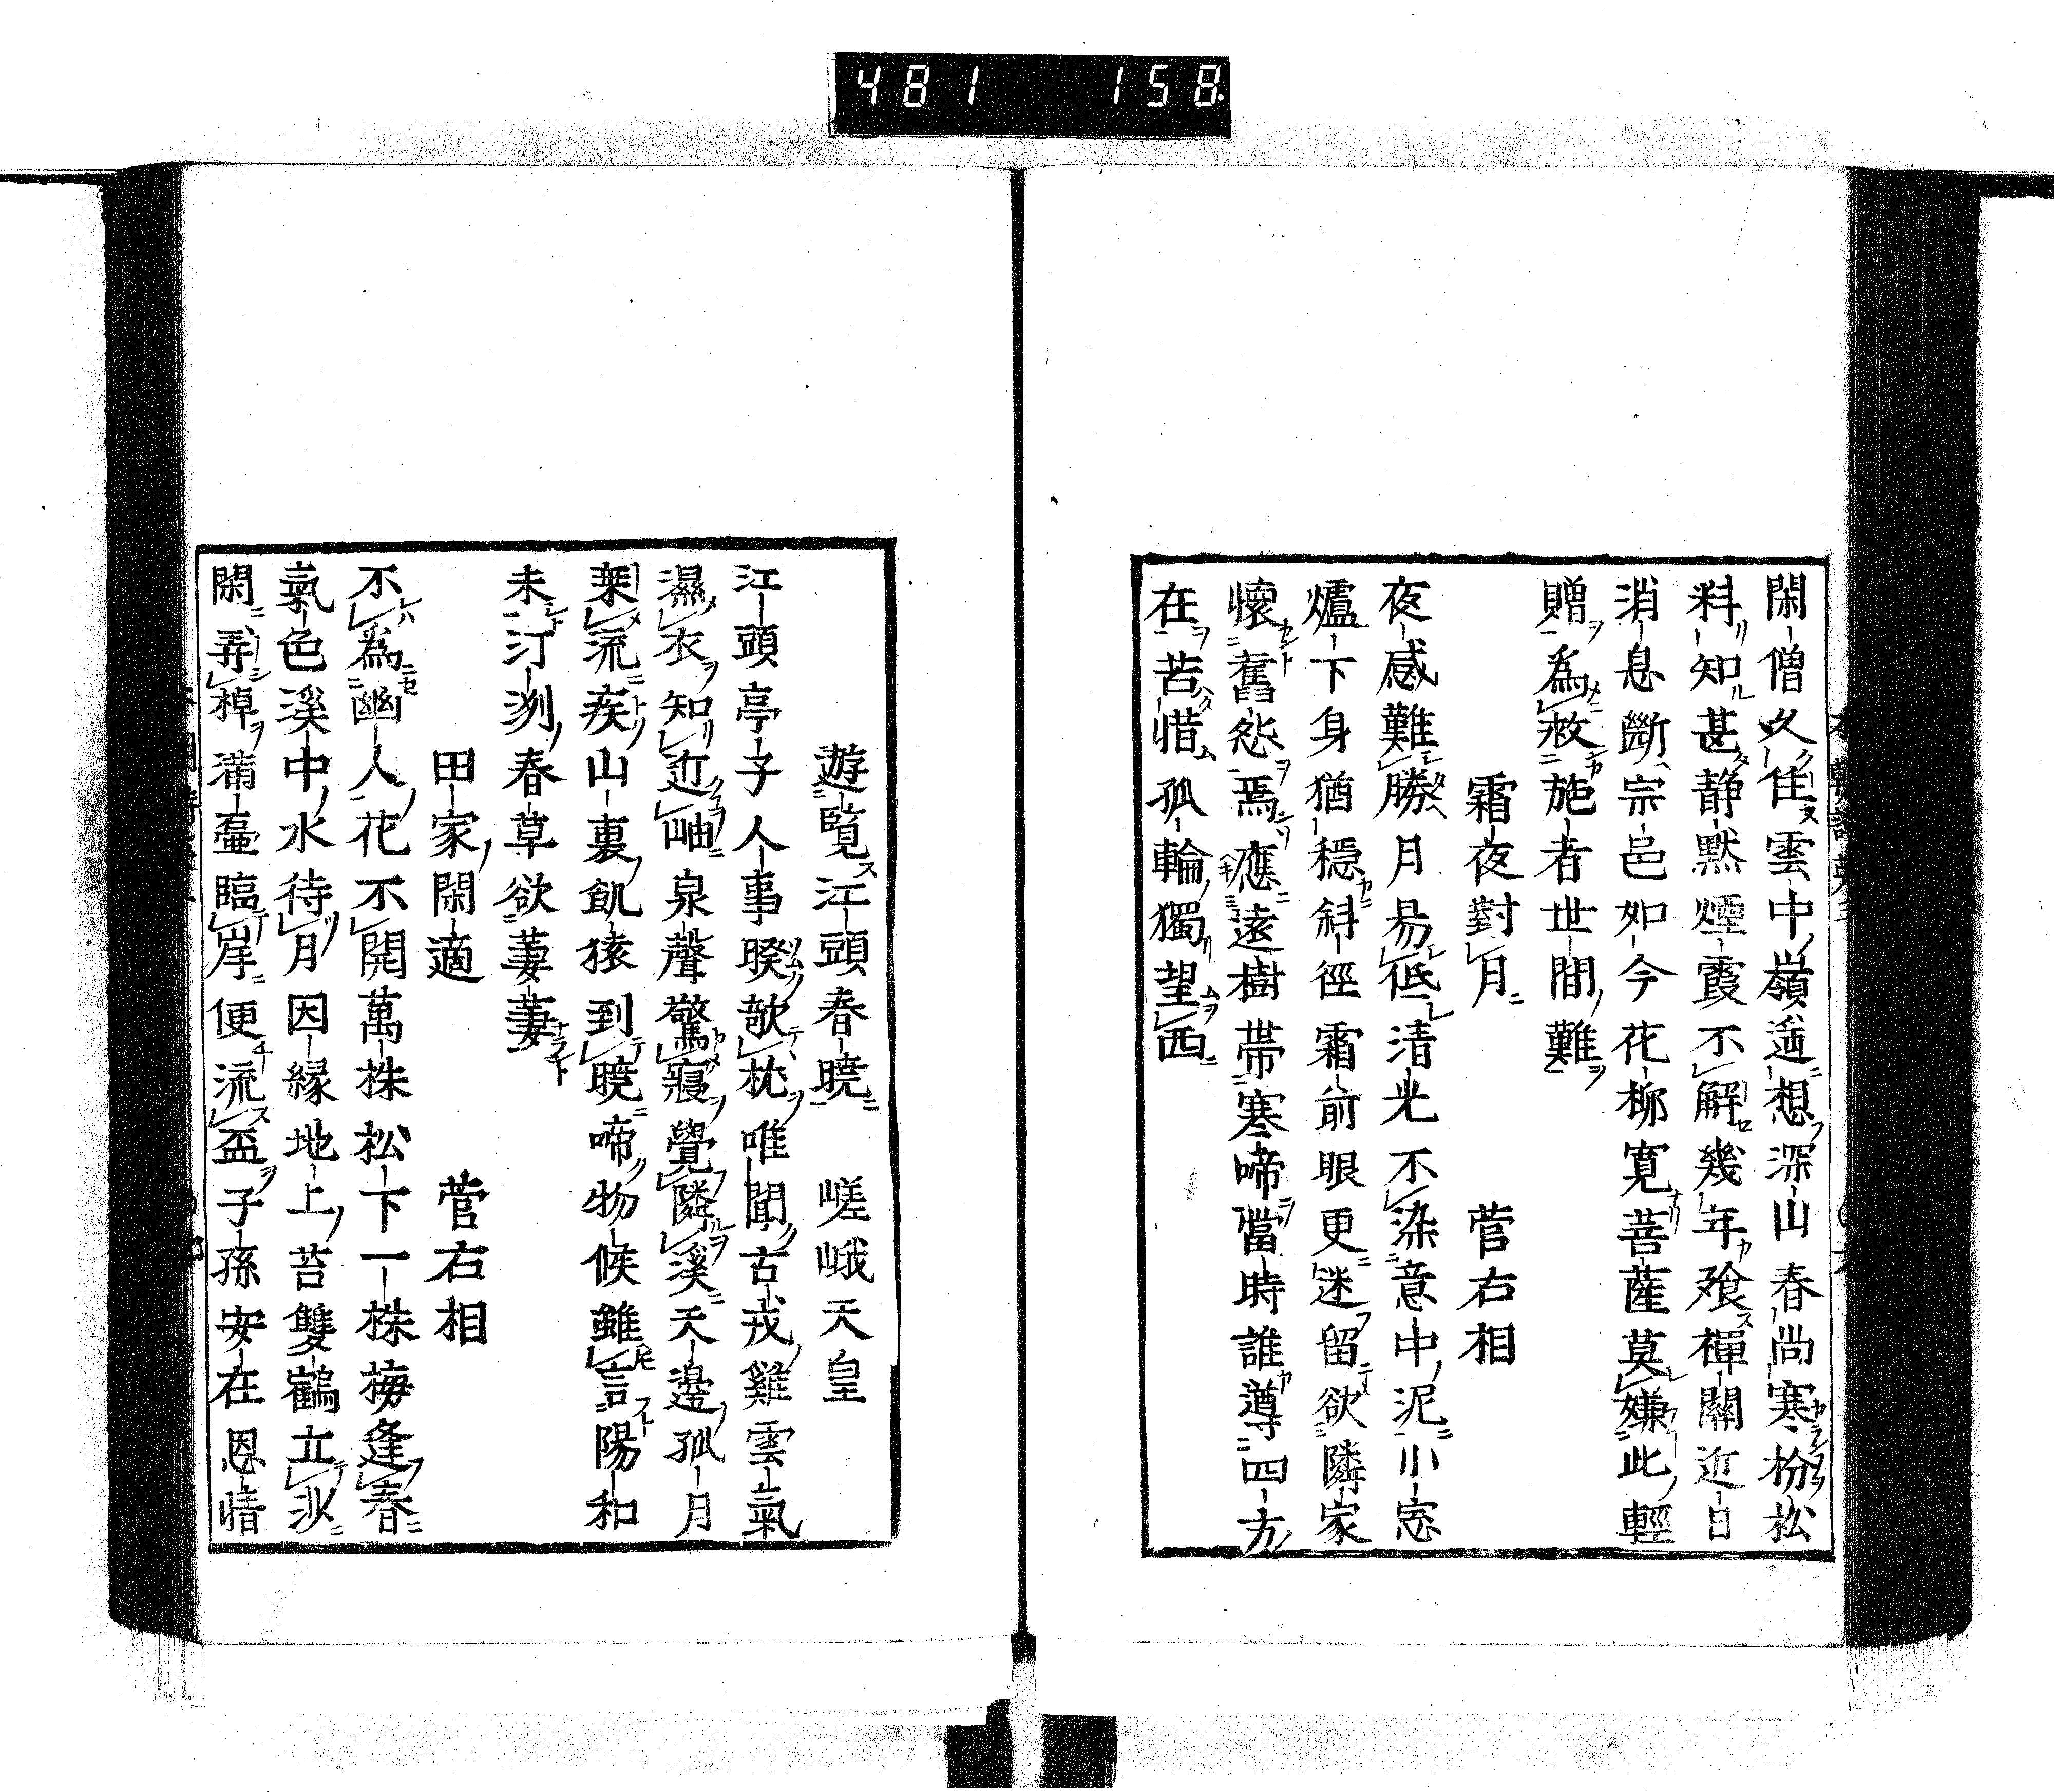 481 158
閑僧久住雲中嶺遥想深山春尚寒枌松
料知甚静黙煙霞不解幾年飡禪關近日
消息斷京邑如今花柳寛菩薩莫嫌此輕
贈為救施者世間難
霜夜對月 菅右相
夜感難勝月易低清光不染意中泥小窓
爐下身猶穏斜徑霜前眼更迷留欲隣家
懷舊怨焉應遠樹帯寒啼儅時誰導四方
在苦惜孤輪獨望西
遊覧江頭春曉 嵯峨天皇
江頭亭子人事睽欹枕唯聞古戍雞雲氣
濕衣知近岫泉聲驚寢覺隣溪天邊孤月
乗流疾山裏飢猿到曉啼物候雖言陽和
未汀洲春草欲萋萋
田家閑適 菅右相
不為幽人花不開萬株松下一株梅逢春
氣色溪中水待月因縁地上苔雙鶴立汀
閑弄棹満壷臨岸便流盃子孫安在恩惜